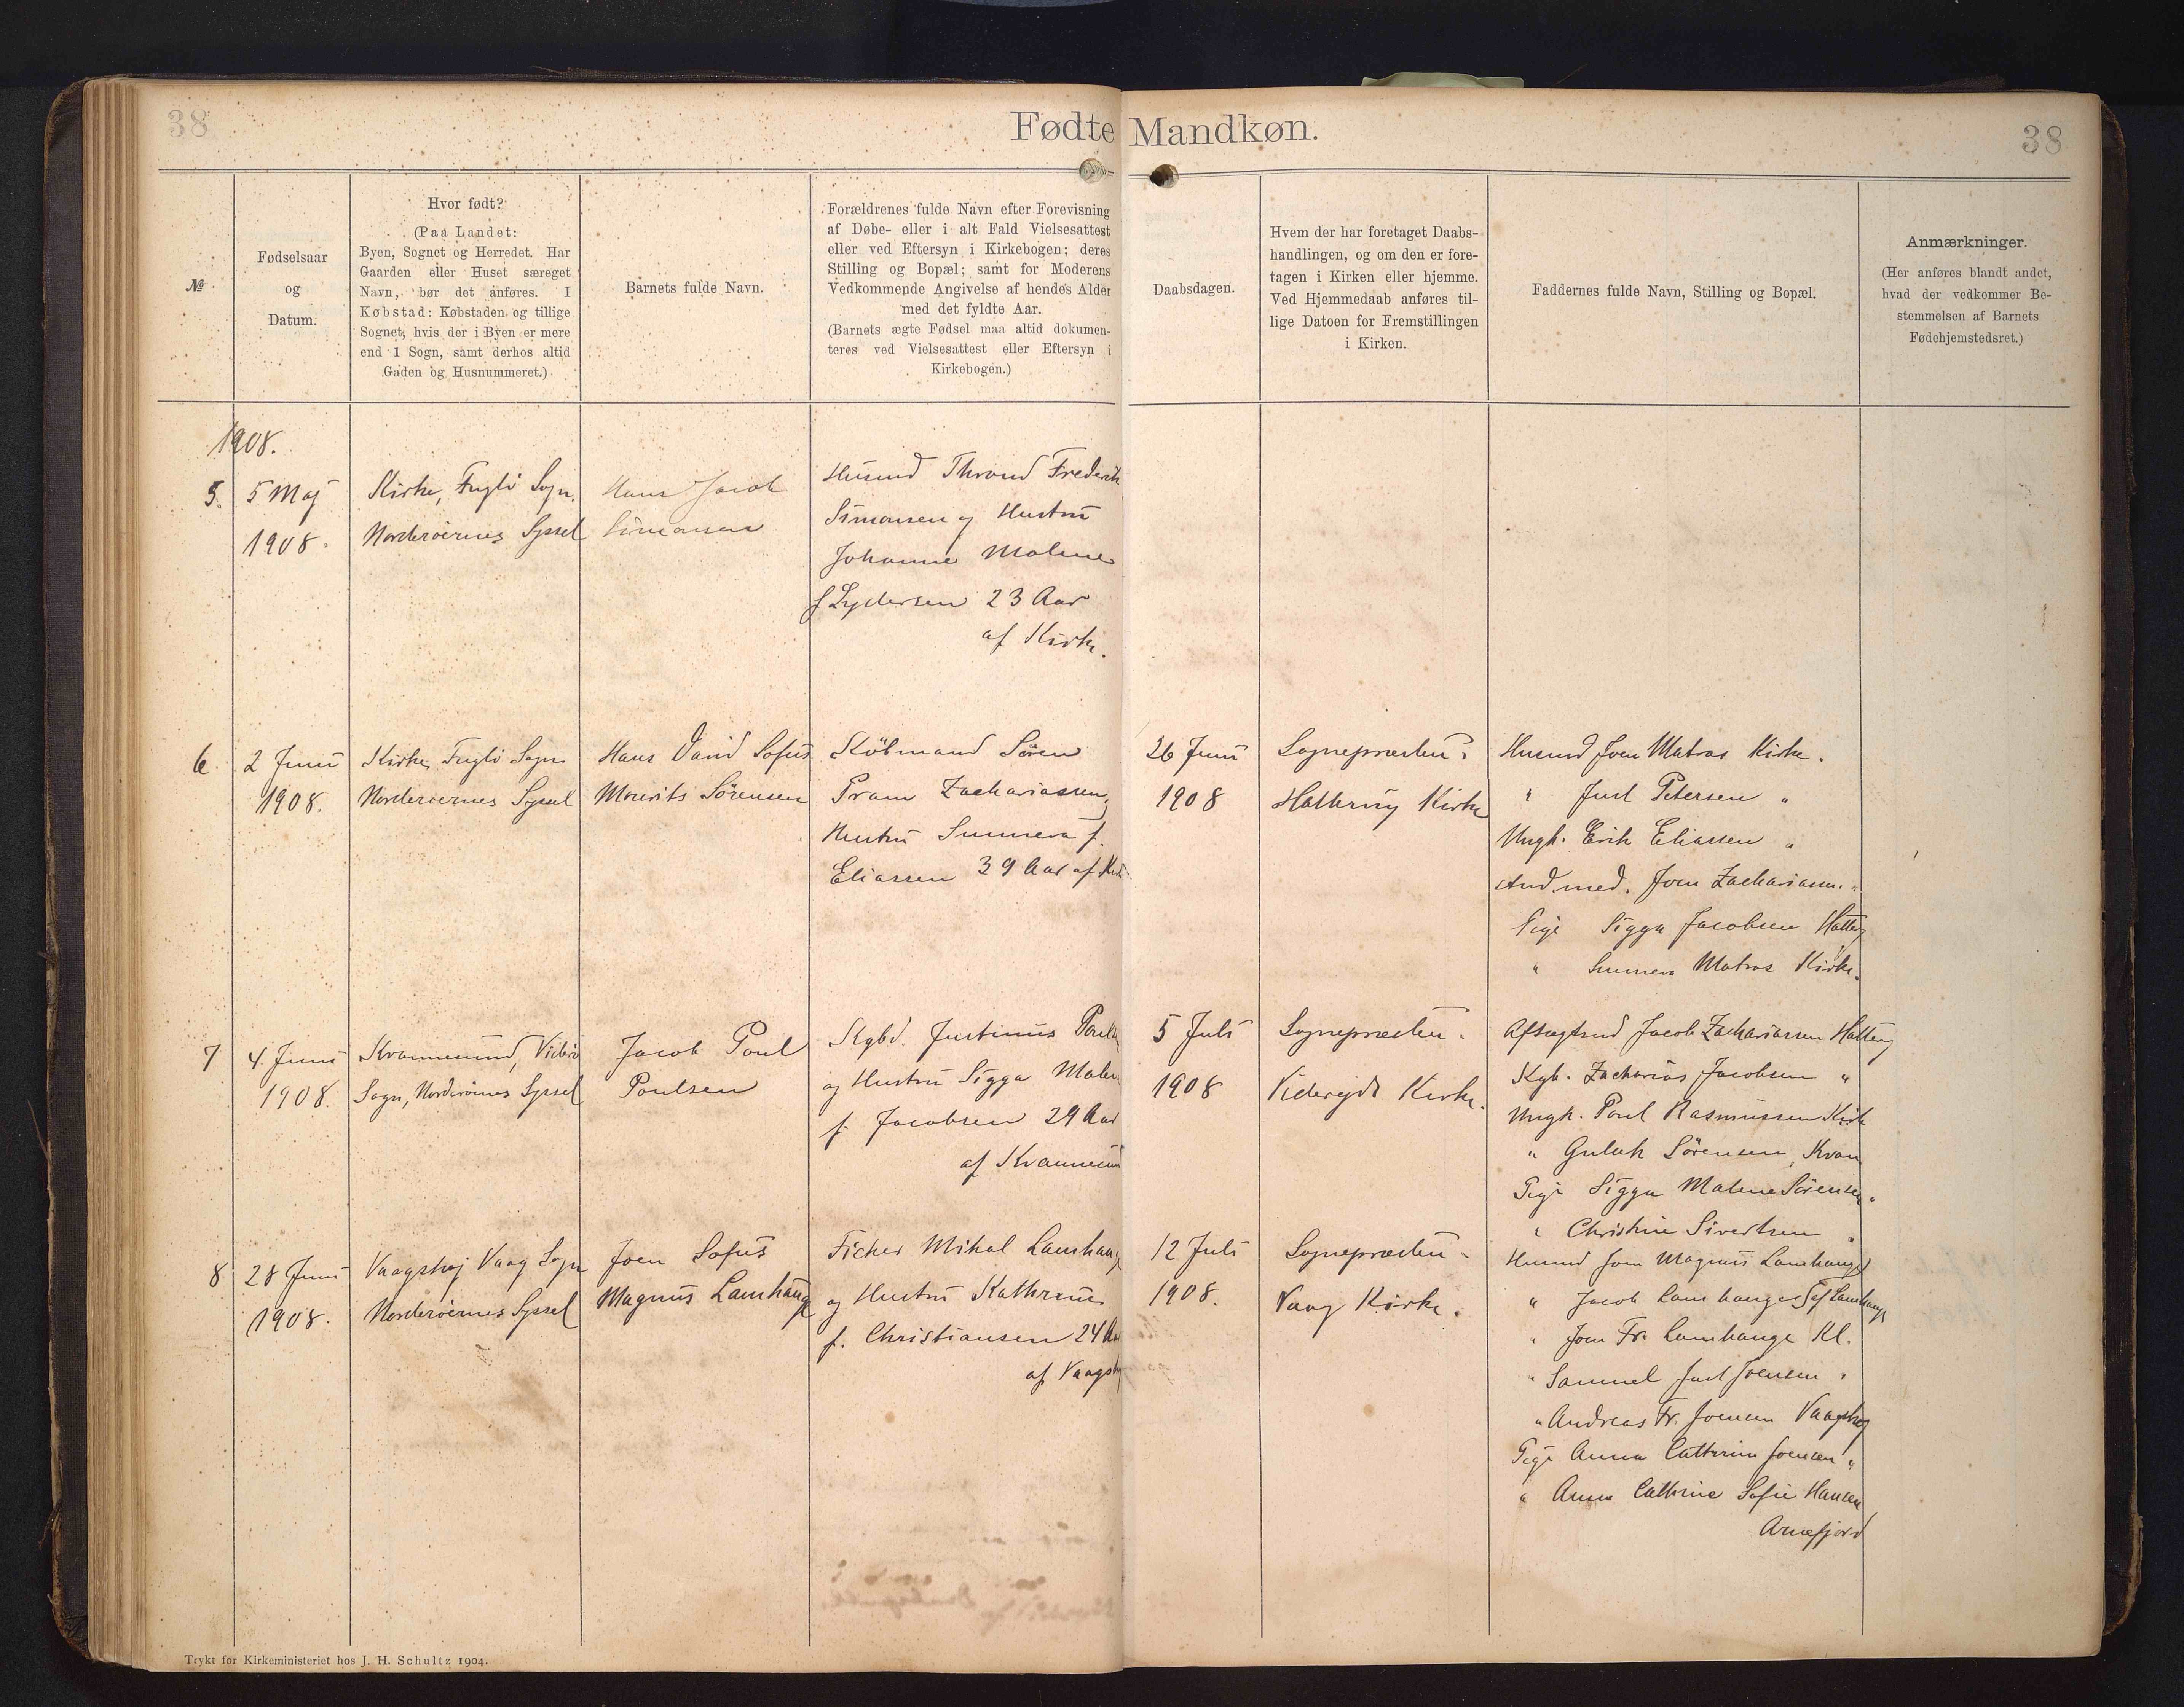 38
Fødte Mandkøn.
38
№
Fødselsaar
og
Datum.
Hvor født?
(Paa Landet:
Byen, Sognet og Herredet. Har
Gaarden eller Huset særeget
Navn, bør det anføres. I
Købstad: Købstaden og tillige
Sognet, hvis der i Byen er mere
end 1 Sogn, samt derhos altid
Gaden og Husnummeret.)
Barnets fulde Navn.
Forældrenes fulde Navn efter Forevisning
af Døbe- eller i alt Fald Vielsesattest
eller ved Eftersyn i Kirkebogen; deres
Stilling og Bopæl; samt for Moderens
Vedkommende Angivelse af hendes Alder
med det fyldte Aar.
(Barnets ægte Fødsel maa altid dokumen-
teres ved Vielsesattest eller Eftersyn i
Kirkebogen.)
Daabsdagen.
Hvem der har foretaget Daabs-
handlingen, og om den er fore-
tagen i Kirken eller hjemme.
Ved Hjemmedaab anføres til-
lige Datoen for Fremstillingen
i Kirken.
Faddernes fulde Navn, Stilling og Bopæl.
Anmærkninger.
(Her anføres blandt andet,
hvad der vedkommer Be-
stemmelsen af Barnets
Fødehjemstedsret.)
1908.
5.
5 Maj
1908.
Kirke, Fuglö Sogn.
Norderöernes Syssel
Hans Jacob
Simonsen
Husmd Thrond Frederik
Simonsen og Hustru
Johanne Malene
f Lydersen 23 Aar
af Kirke.
6
2 Juni
1908.
Kirke, Fuglö Sogn
Norderöernes Syssel
Hans David Sofus
Mourits Sörensen
Köbmand Sören
Pram Zachariassen,
Hustru Sunneva f.
Eliassen 39 Aar af
26 Juni
1908
Sognepræsten i
Hattervig Kirke
Husmd Joen Matras Kirke.
" Just Petersen "
Ungk. Erik Eliassen "
med. Joen Zachariassen "
Pige Sigga Jacobsen Hatterv
" Sunneva Matras Kirke.
7
4. Juni
1908.
Kvannesund, Viderö
Sogn, Norderöernes Syssel
Jacob Poul
Poulsen
Kgbd. Justinus
og Hustru Sigga Malen
f. Jacobsen 29 Aar
af Kvannesund
5 Juli
1908
Sognepræsten.
Videreide Kirke.
Aftægtsmd Jacob Zachariassen Hatterv
Kgb. Zacharias Jacobsen "
Ungk. Poul Rasmussen Kirk
" Gulak Sörensen, Kvan
Pige Sigga Malene Sörensen "
" Christine Sivertsen "
8
28 Juni
1908.
Vaagshøj Vaag Sogn
Norderöernes Syssel
Joen Sofus
Magnus Lamhauge
Fisker Mikal Lamhauge
og Hustru Kathrine
f. Christiansen 24 Aa
af Vaagsh
12 Juli
1908.
Sognepræsten
Vaag Kirke.
Husmd Joen Magnus Lamhauge
" Jacob Lamhauge af Lamhauge
" Joen Fr. Lamhauge Kl.
" Samuel Just Joensen "
" Andreas Fr. Joensen Vaagshøj
Pige Anna Cathrine Joensen "
" Anna Cathrine Sofie Hansen
Arnefjord
Trykt for Kirkeministeriet hos J. H. Schultz 1904.